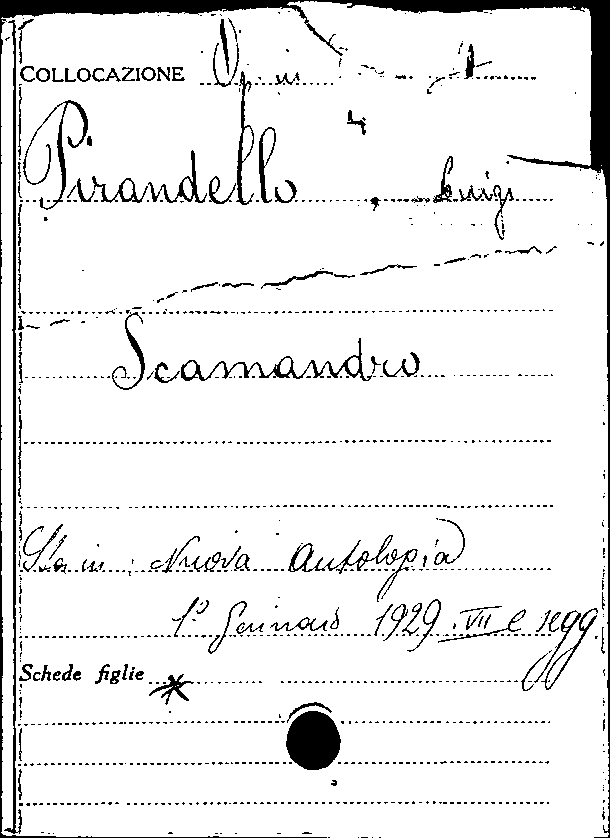 COLLOCAZIONE Op. in
4
Pirandello, Luigi
Scamandro
Sta in: Nuova Antologia
1° Gennaio 1929. VII e segg.
Schede figlie